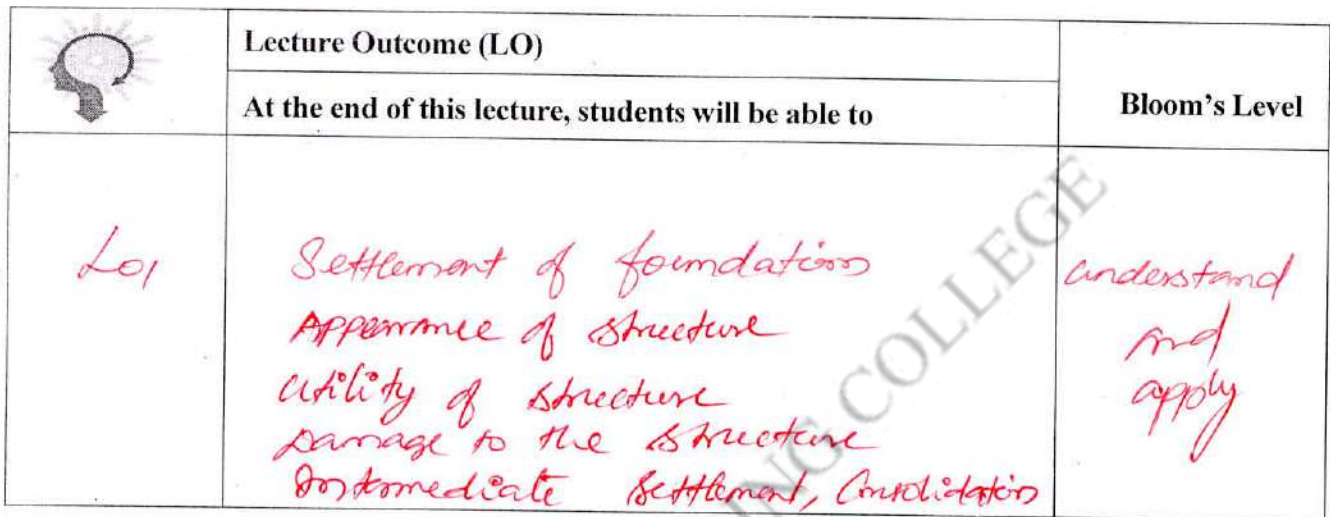 Lecture Outcome (LO)
At the end of this lecture, students will be able to
Bloom's Level
LO1
Settlement of foundation
Appearance of structure
utility of structure
Damage to the structure
Intermediate Settlement, Consolidation
understand
and
apply
ING COLLEGE